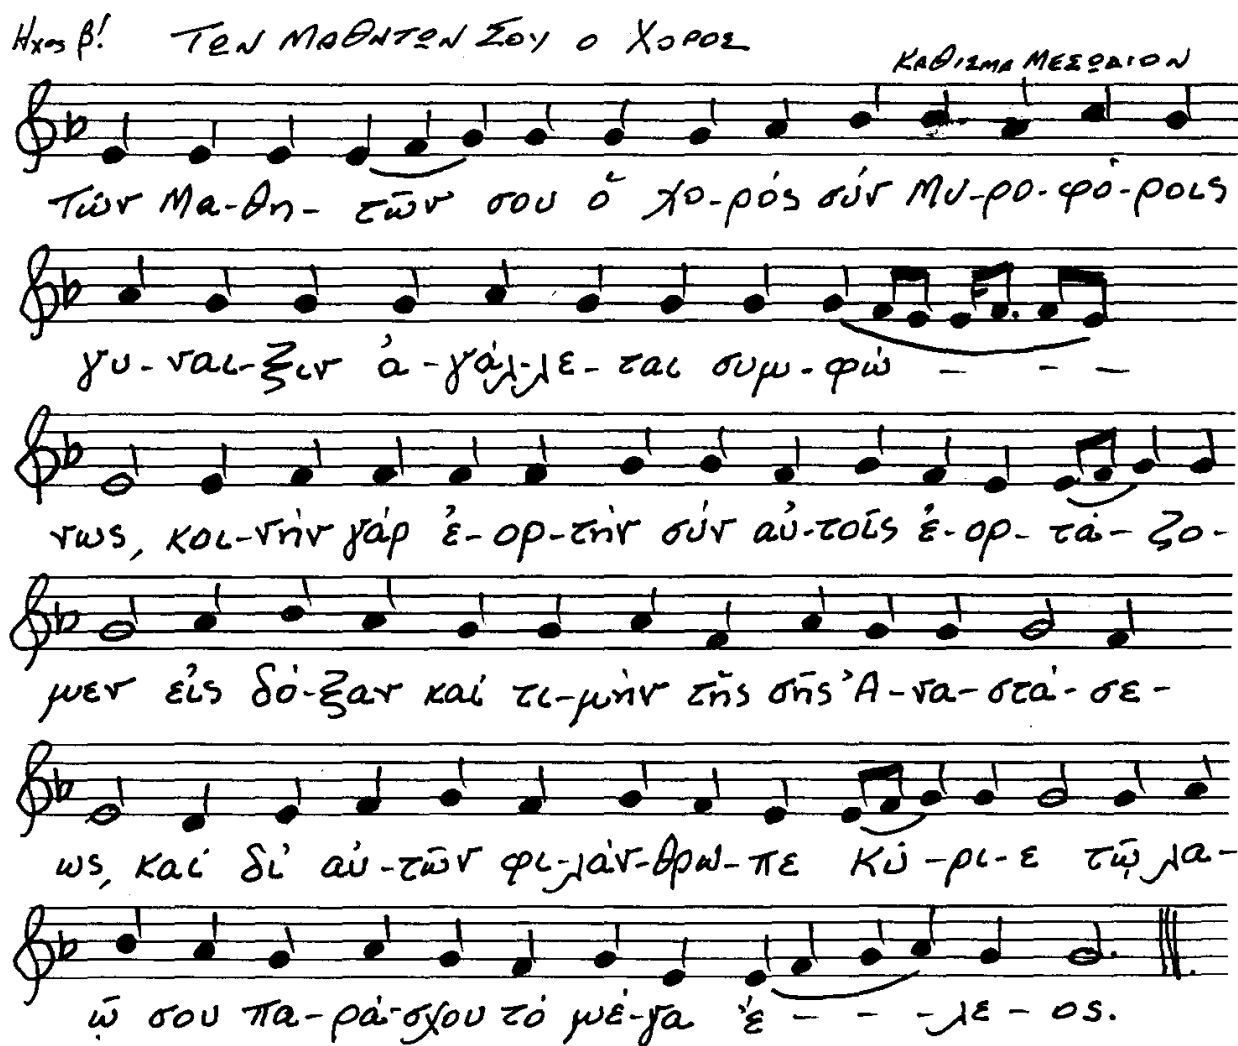 Ηχος β! ΤΩΝ ΜΑΘΗΤΩΝ ΣΟΥ Ο ΧΟΡΟΣ
ΚΑΘΙΣΜΑ ΜΕΣΩΔΙΟΝ
Τών Μα-θη- τῶν σου ὅ χο-ρός σύν Μυ-ρο-φό-ροις
γυ-ναι-ξιν ἀ-γάλ-λε-ται συμ-φώ - - -
νως, κοι-νήν γάρ ἐ-ορ-τήν σύν αὐ-τοῖς ἐ-ορ-τά-ζο-
μεν εἰς δό-ξαν καί τι-μήν τῆς σῆς Ἀ-να-στά-σε-
ως, καί δι' αὐ-τῶν φι-λάν-θρω-πε Κύ-ρι-ε τῷ λα-
ῷ σου πα-ρά-σχου τό μέ-γα ἔ - - -λε-ος.